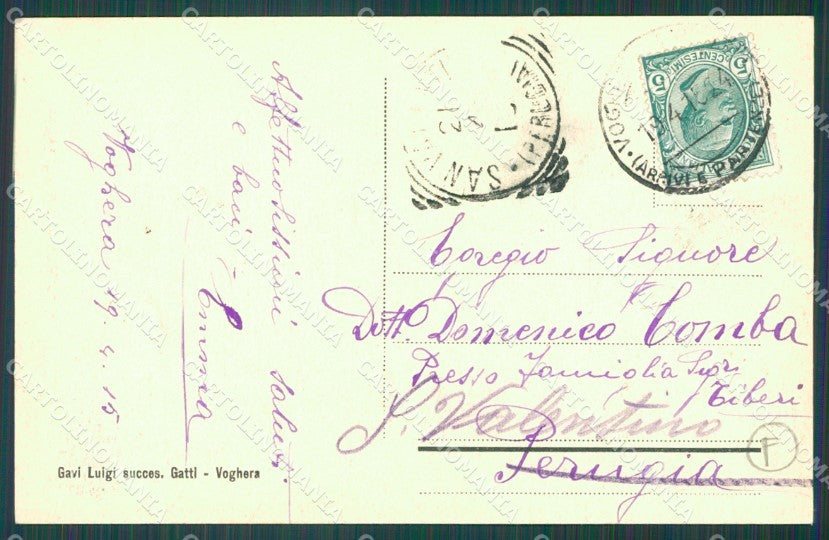 Affettuosissimi saluti
e baci
Emma
Voghera 19. 4. 15
Gavi Luigi succes. Gatti - Voghera
SAN VA
(PERUGIA)
5 CENTESIMI 5
VOGHERA
(ARRIVI E PARTENZE)
Egregio Signore
Dott. Domenico Comba
Presso Famiglia Sigri
Tiberi
S. Valentino
Perugia
F
CARTOLINOMANIA